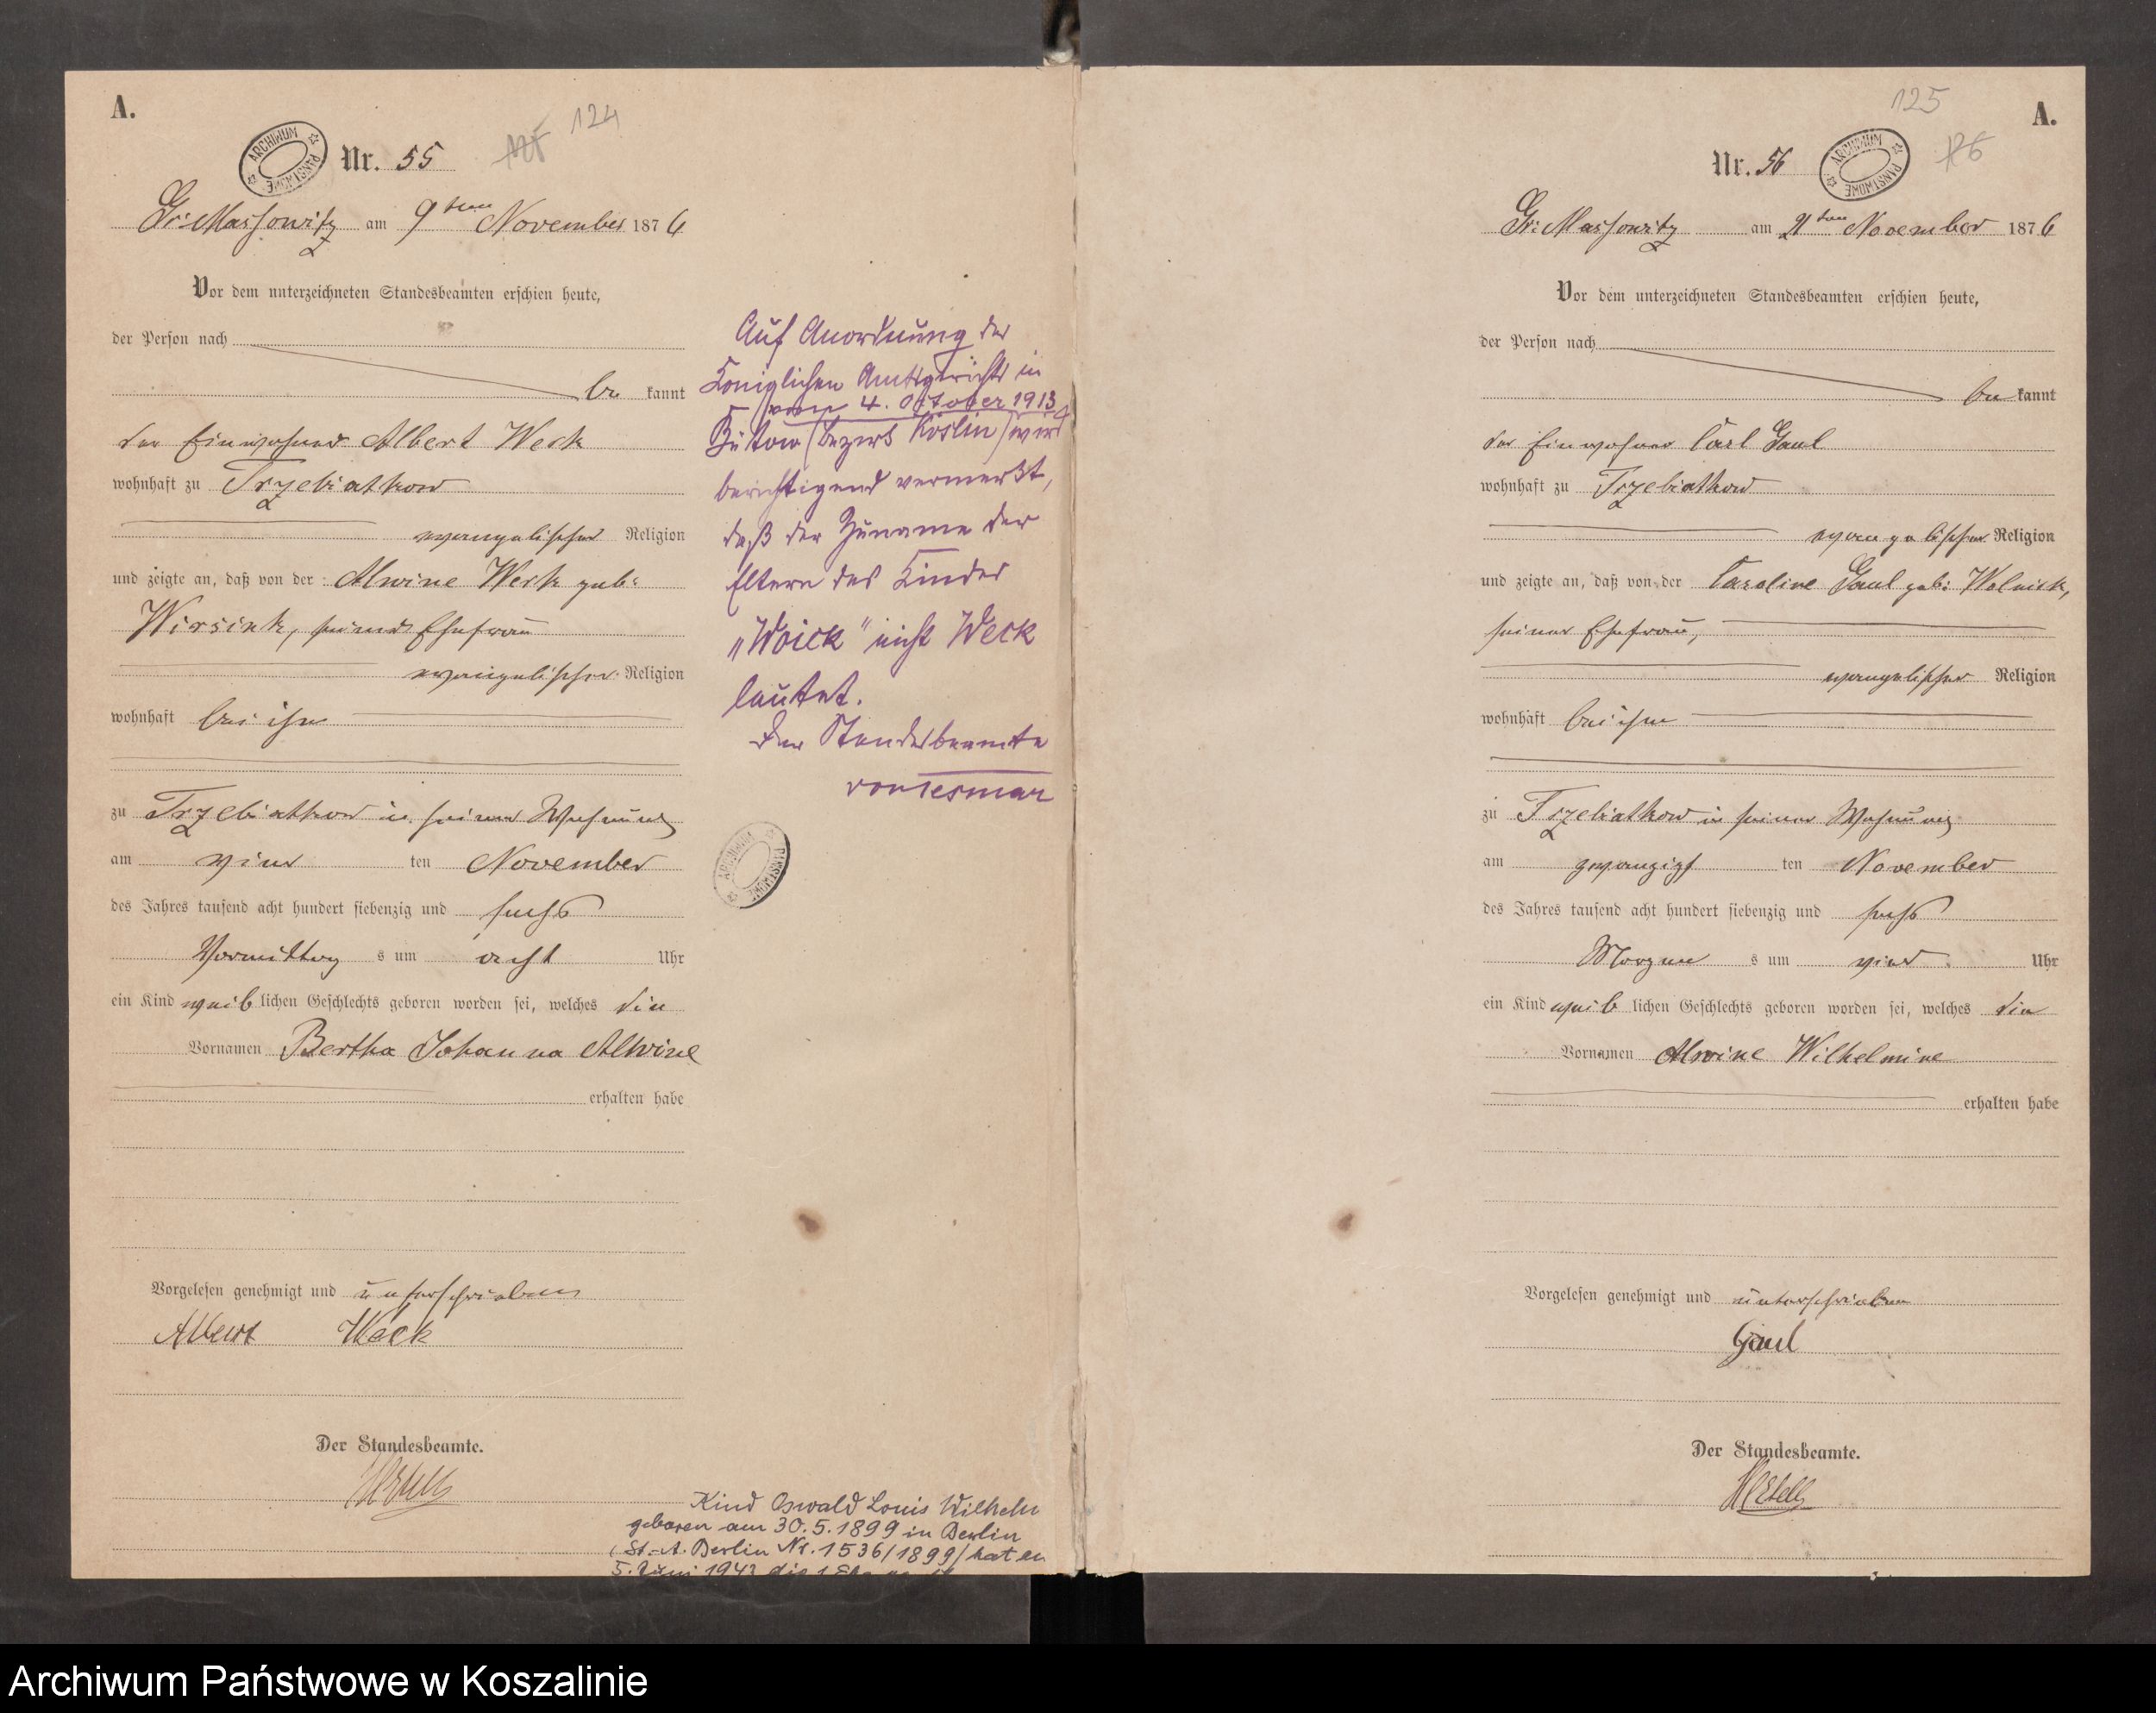 A.
ARCHIWUM PAŃSTWOWE
Nr. 55
124
Gr: Massowitz am 9ten November 1876
Vor dem unterzeichneten Standesbeamten erschien heute,
der Person nach
be kannt
der Einwohner Albert Weck
wohnhaft zu Trzebiatkow
evangelischer Religion
und zeigte an, daß von der Alwine Weck geb:
Wirsink, seiner Ehefrau
evangelischer Religion
wohnhaft bei ihm
zu Trzebiatkow in seiner Wohnung
am vier ten November
des Jahres tausend acht hundert siebenzig und sechs
Vormittag s um acht Uhr
ein Kind weib lichen Geschlechts geboren worden sei, welches die
Vornamen Bertha Johanna Alwine
erhalten habe
Vorgelesen genehmigt und unterschrieben
Albert Weck
Der Standesbeamte.
Auf Anordnung des
Königlichen Amtsgerichts in
vom 4. Oktober 1913
Bütow (Bezirk Köslin) wird
berichtigend vermerkt,
daß der Zuname der
Eltern des Kindes
„Woick" nicht Weck
lautet.
Der Standesbeamte
von Tesmar
ARCHIWUM PAŃSTWOWE
Kind Oswald Louis Wilhelm
geboren am 30.5.1899 in Berlin
(St.-A. Berlin Nr. 1536/1899) hat am
5. Juni 1943 die 1. Ehe
A.
125
Nr. 56
ARCHIWUM PAŃSTWOWE
Gr: Massowitz am 21ten November 1876
Vor dem unterzeichneten Standesbeamten erschien heute,
der Person nach
be kannt
der Einwohner Carl Gaul
wohnhaft zu Trzebiatkow
evangelischer Religion
und zeigte an, daß von der Caroline Gaul geb: Wolnick,
seiner Ehefrau,
evangelischer Religion
wohnhaft bei ihm
zu Trzebiatkow in seiner Wohnung
am zwanzigs ten November
des Jahres tausend acht hundert siebenzig und sechs
Morgen s um vier Uhr
ein Kind weib lichen Geschlechts geboren worden sei, welches die
Vornamen Alwine Wilhelmine
erhalten habe
Vorgelesen genehmigt und unterschrieben
Gaul
Der Standesbeamte.
Archiwum Państwowe w Koszalinie